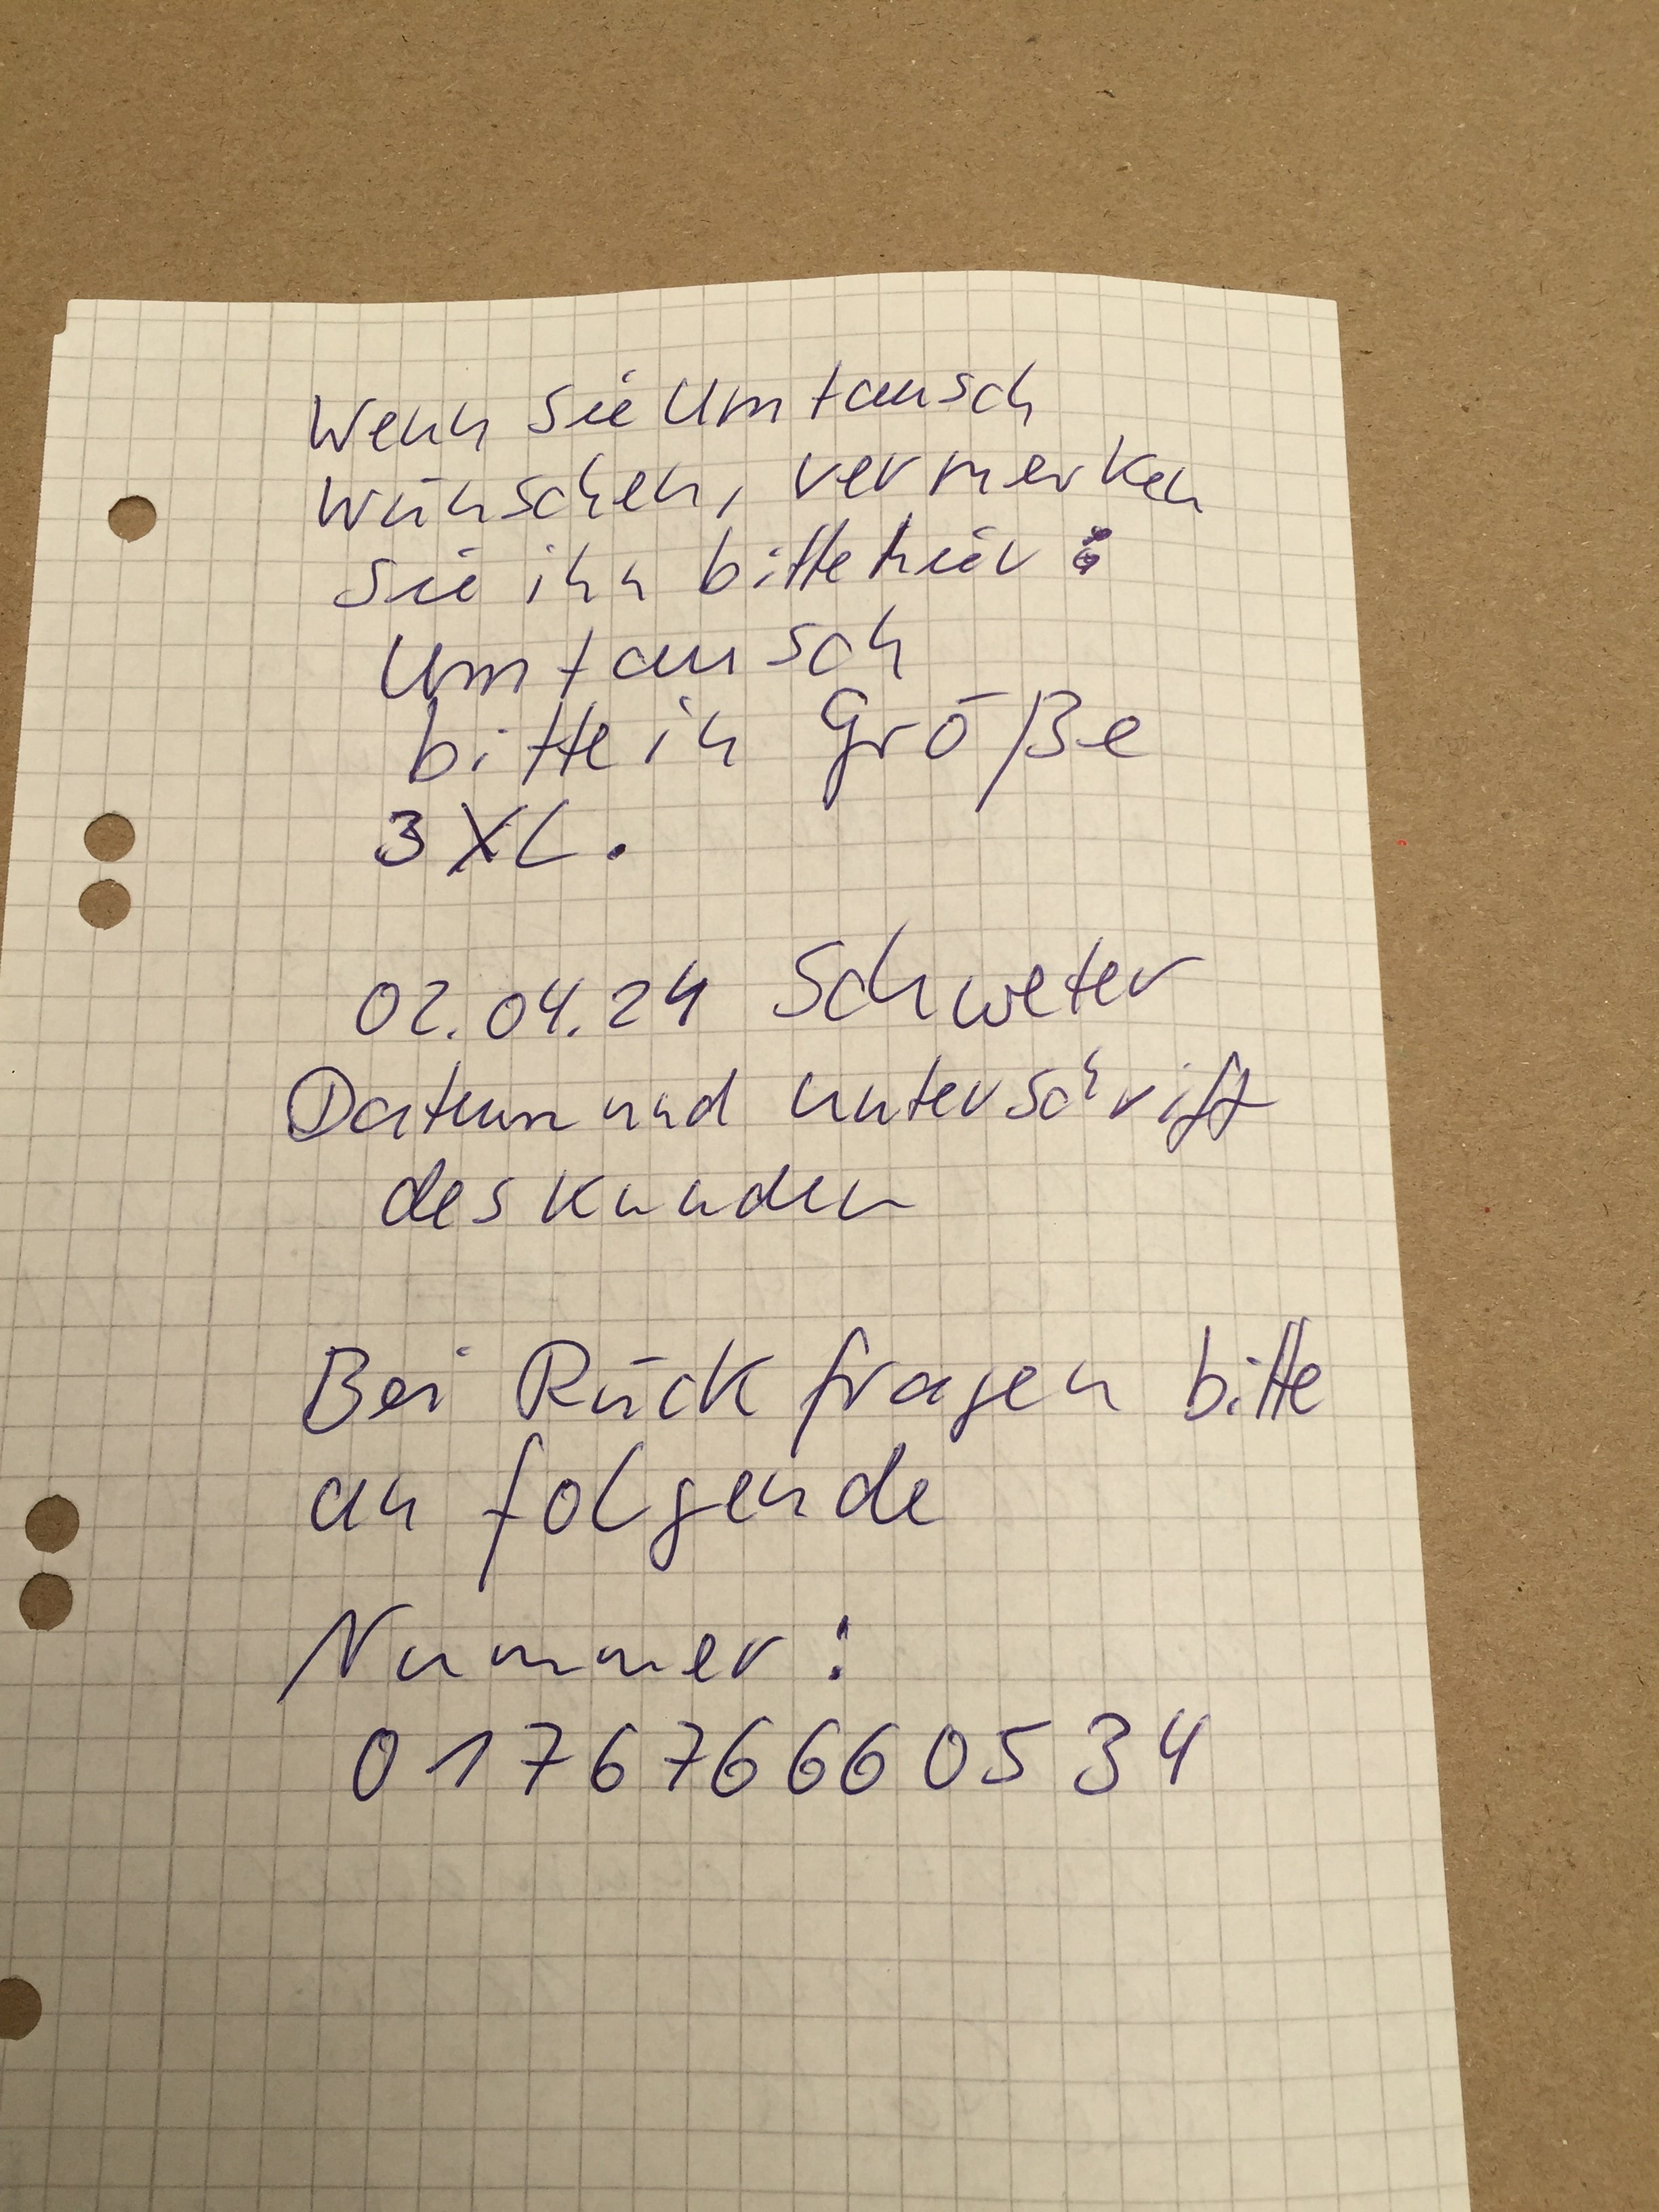 Wenn Sie Umtausch
wünschen, vermerken
Sie ihn bitte hier:
Umtausch
bitte in Größe
3XL.
02.04.24 Schweter
Datum und Unterschrift
des Kunden
Bei Rückfragen bitte
an folgende
Nummer:
017676660534